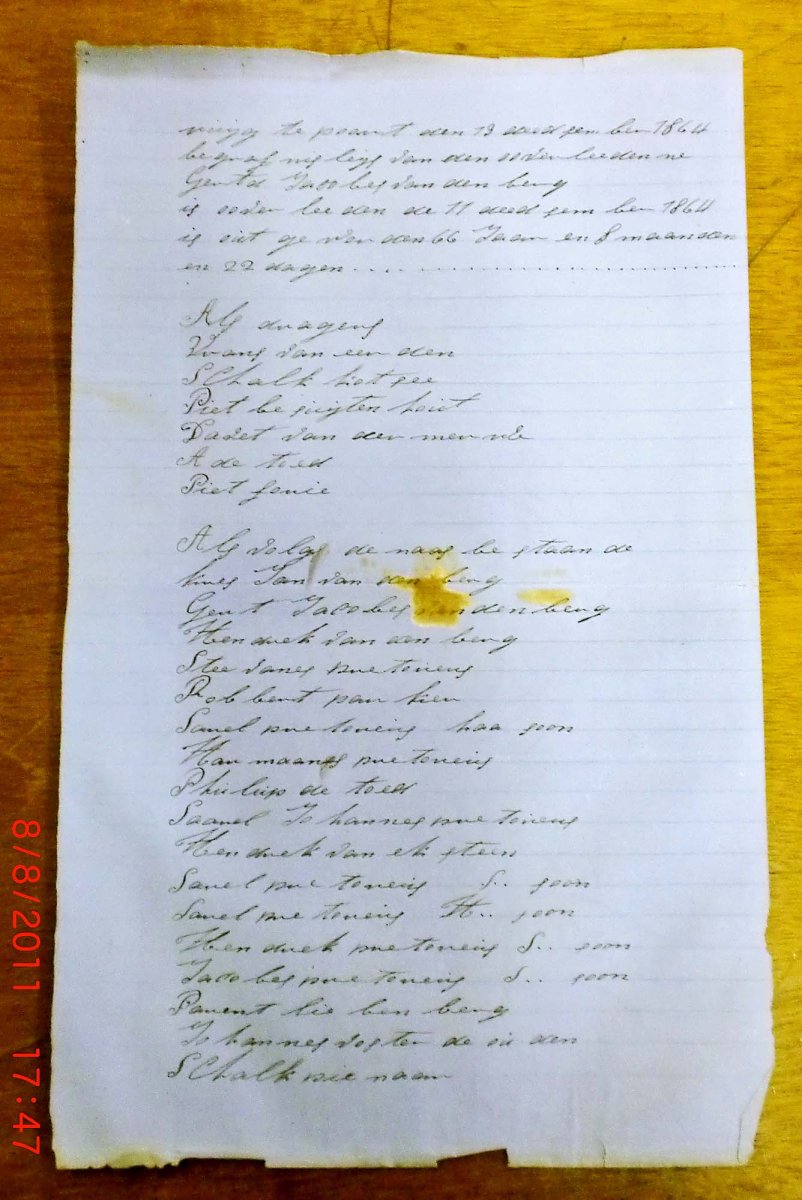 te den 13 deed sem ber 1864
be graf nis lijs van den oover leeden ne
Gerrt Jacobes van den berg
is oover lee den de 11 deed sem ber 1864
is out ge wor den 66 Jaar en 8 maanden
en 22 dagen
Als dragers
Frans van eer den
SChalk
Piet be suijten hout
Davet van der mer we
A de toed
Piet fenie
Als volgs de naas be staan de
Jan van den berg
Gerrt Jacobes van den berg
Hendrek van den berg
Stee vanes pre toreus
Rob bert
Sauel pre toreius haa soon
Har maanes pre toreius
Philip de toed
Saauel Jo hannes pre toreus
Hen drek van ek steen
Sauel pre toreius S.. soon
Sauel pre toreius H.. soon
Hen drek pre toreius S.. soon
Jacobes pre toreius S.. soon
Parent lie ben berg
Jo hannes voster de ou den
SChalk pie naar
8/8/2011 17:47